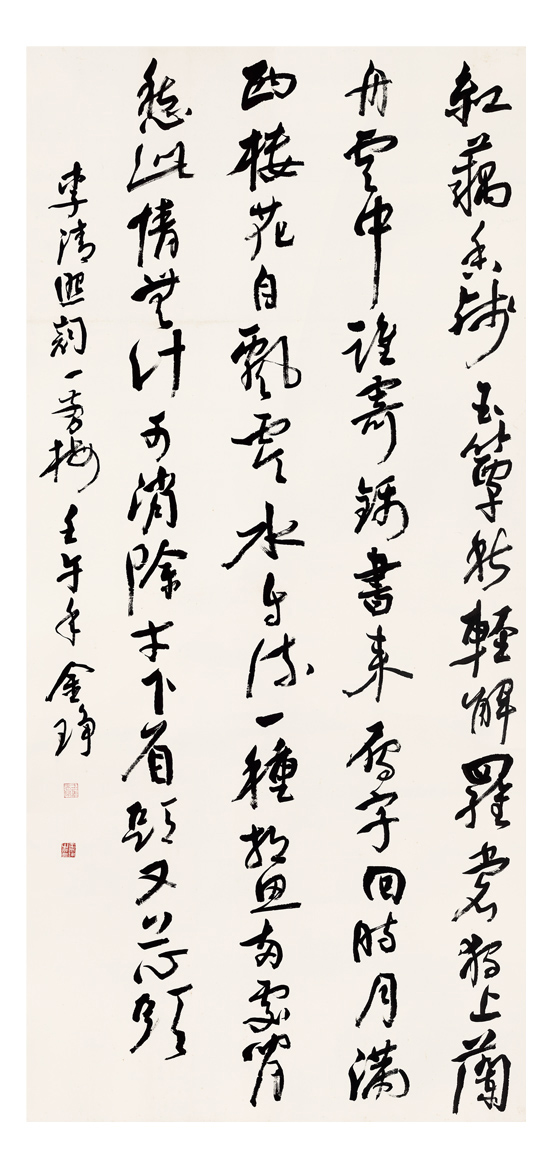 紅藕香殘玉簟秋輕解羅裳獨上蘭
舟雲中誰寄錦書来雁字回時月满
西樓花自飄零水自流一種相思兩處閒
愁此情無計可消除才下眉頭又上心頭
李清照詞一剪梅壬午年金琤